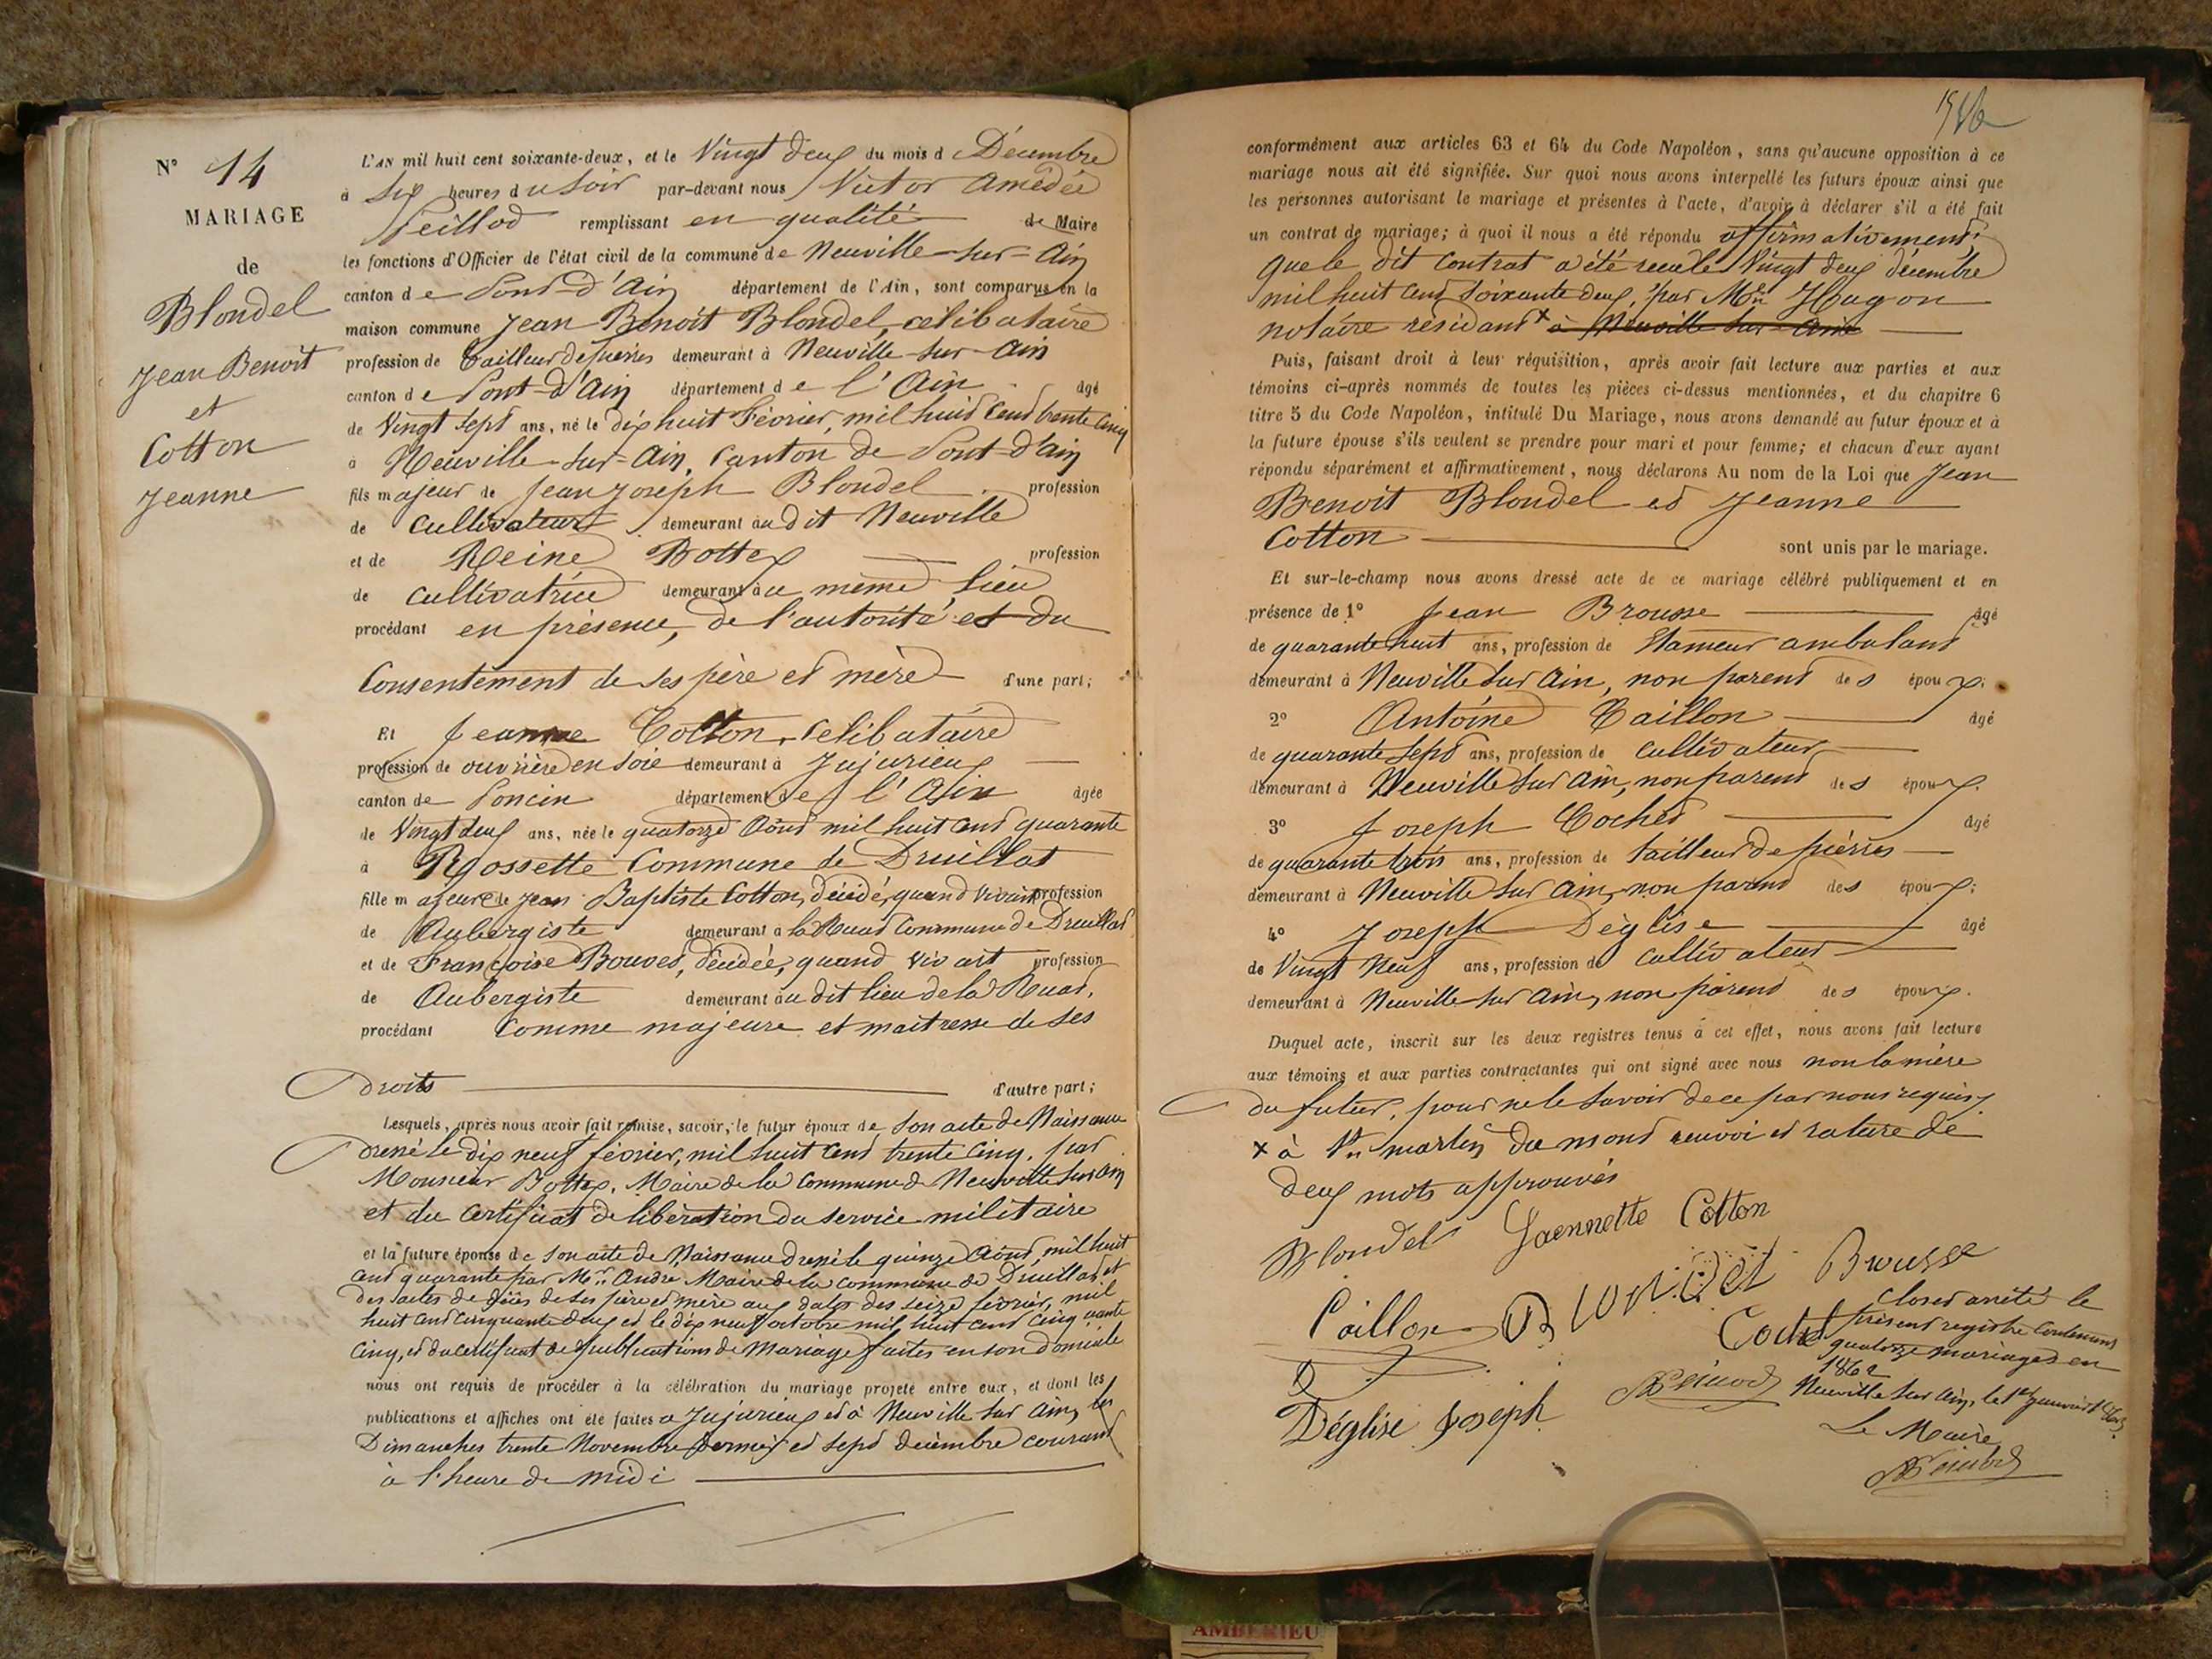 N° 14
MARIAGE
de
Blondel
Jean Benoit
et
Cotton
Jeanne
L'AN mil huit cent soixante-deux, et le Vingt deux du mois d Décembre
à Six heures du Soir par-devant nous Victor Amédée
Peillod remplissant en qualité de Maire
les fonctions d'Officier de l'état civil de la commune de Neuville-sur-Ain
canton de Pont-d'Ain département de l'Ain, sont comparus en la
maison commune Jean Benoit Blondel, célibataire
profession de Tailleur de pierres demeurant à Neuville-sur-Ain
canton de Pont-d'Ain département de l'Ain âgé
de Vingt Sept ans, né le dix huit Février, mil huit Cent trente Cinq
à Neuville-sur-Ain, Canton de Pont-d'Ain
fils majeur de Jean Joseph Blondel profession
de Cultivateur demeurant au dit Neuville
et de Reine Bottex profession
de Cultivatrice demeurant au même lieu
procédant en présence, de l'autorité et du
Consentement de ses père et mère d'une part;
Et Jeanne Cotton, Célibataire
profession de ouvrière en soie demeurant à Jujurieux
canton de Poncin département de l'Ain âgée
de Vingt deux ans, née le quatorze Août mil huit Cent quarante
à Rossette Commune de Druillat
fille majeure de Jean Baptiste Cotton, décédé, quand vivait profession
de Aubergiste demeurant à la Ruat Commune de Druillat
et de Françoise Bouvet, décédée, quand vivait profession
de Aubergiste demeurant au dit lieu de la Ruat,
procédant Comme majeure et maitresse de ses
droits d'autre part;
Lesquels, après nous avoir fait remise, savoir, le futur époux de Son acte de Naissance
dressé le dix neuf février, mil huit Cent trente Cinq, par
Monsieur Bottex, Maire de la Commune de Neuville sur Ain
et du Certificat de libération du service militaire
et la future épouse de Son acte de Naissance dressé le quinze Août, mil huit
Cent quarante par Mr André Maire de la Commune de Druillat, et
des actes de décès de ses père et mère aux dates des seize février, mil
huit Cent Cinquante deux et le dix neuf octobre mil huit Cent Cinquante
Cinq, et du certificat de publications de Mariage faites en son domicile
nous ont requis de procéder à la célébration du mariage projeté entre eux, et dont les
publications et affiches ont été faites à Jujurieux et à Neuville sur Ain, les
Dimanches trente Novembre dernier et sept décembre courant
à l'heure de midi
conformément aux articles 63 et 64 du Code Napoléon, sans qu'aucune opposition à ce
mariage nous ait été signifiée. Sur quoi nous avons interpellé les futurs époux ainsi que
les personnes autorisant le mariage et présentes à l'acte, d'avoir à déclarer s'il a été fait
un contrat de mariage; à quoi il nous a été répondu affirmativement;
que le dit Contrat a été reçu le Vingt deux décembre
mil huit Cent Soixante deux, par Me Hugon
notaire résidant x à Neuville sur Ain
Puis, faisant droit à leur réquisition, après avoir fait lecture aux parties et aux
témoins ci-après nommés de toutes les pièces ci-dessus mentionnées, et du chapitre 6
titre 5 du Code Napoléon, intitulé Du Mariage, nous avons demandé au futur époux et à
la future épouse s'ils veulent se prendre pour mari et pour femme; et chacun d'eux ayant
répondu séparément et affirmativement, nous déclarons Au nom de la Loi que Jean
Benoit Blondel et Jeanne
Cotton sont unis par le mariage.
Et sur-le-champ nous avons dressé acte de ce mariage célébré publiquement et en
présence de 1° Jean Brousse âgé
de quarante huit ans, profession de Etameur ambulant
demeurant à Neuville sur Ain, non parent des époux;
2° Antoine Caillon âgé
de quarante Sept ans, profession de Cultivateur
demeurant à Neuville sur Ain, non parent des époux.
3° Joseph Cochet âgé
de quarante trois ans, profession de tailleur de pierres
demeurant à Neuville sur Ain, non parent des époux;
4° Joseph Déglise âgé
de Vingt Neuf ans, profession de Cultivateur
demeurant à Neuville sur Ain, non parent des époux.
Duquel acte, inscrit sur les deux registres tenus à cet effet, nous avons fait lecture
aux témoins et aux parties contractantes qui ont signé avec nous non la mère
du futur, pour ne le savoir de ce par nous requis.
x à St martin du mont renvoi et rature de
deux mots approuvés
Blondel Jaennette Cotton
Caillon Blondel Brousse
Cochet
Closet arrêté le
présent registre Contenant
quatorze mariages en
1862
Neuville sur Ain, le 1er janvier
Déglise Joseph
Peillod
Le Maire
Peillod
AMBERIEU